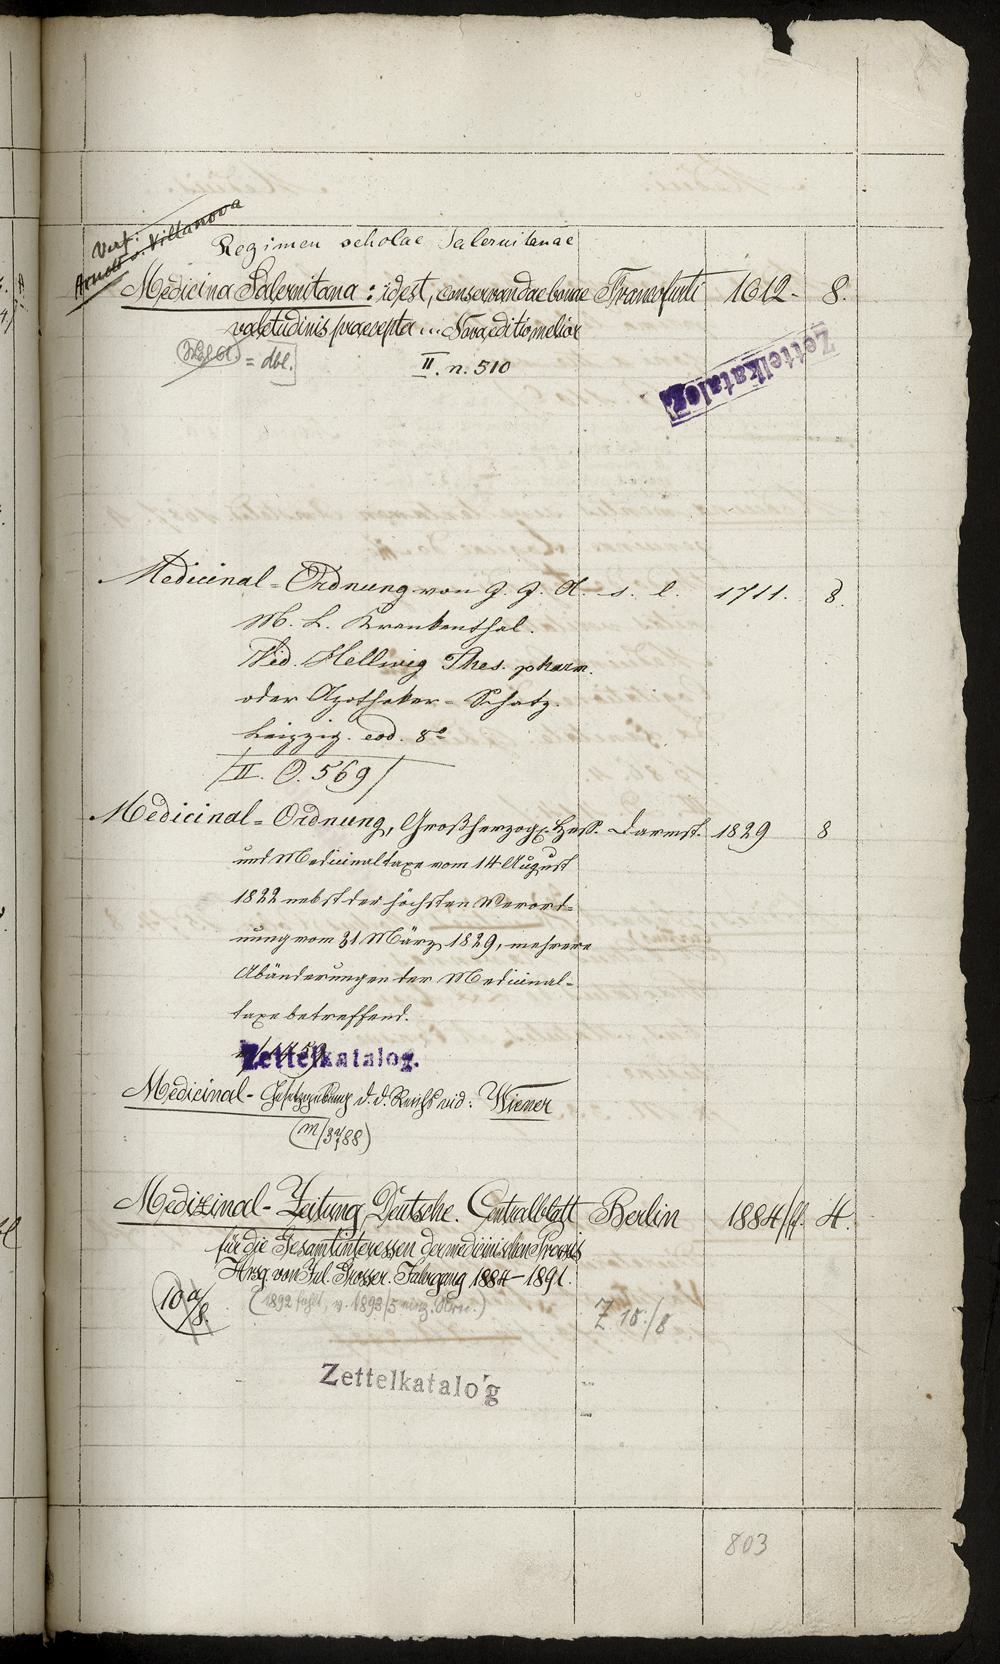 Verf:
Arnold v. Villanova
Regimen scholae Salernitanae
Medicina Salernitana: id est, conservandae bonae Francofurti 1612. 8.
valetudinis praecepta ... Nova editio melior
= dbl.
II. n. 510
Zettelkatalog
Medicinal-Ordnung von J. J. A. s. l. 1711. 8.
M. L. Krankenthal.
Vid. Hellwig Thes. pharm.
oder Apotheker-Schatz.
Leipzig. eod. 8°
/II. O. 569/
Medicinal-Ordnung, Großherzogl. Heß. Darmst. 1829 8
und Medicinaltaxe vom 14 August
1822 nebst der höchsten Verord-
nung vom 31 März 1829, mehrere
Abänderungen der Medicinal-
taxe betreffend.
Zettelkatalog.
Medicinal-Gesetzgebung d. d. Reichs vid: Wiener
(m/3788)
Medizinal-Zeitung, Deutsche. Centralblatt Berlin 1884/ff. 4.
für die Gesamtinteressen der medicinischen Praxis
Hrsg. von Jul. Grosser. Jahrgang 1884-1891.
(1892 fehlt, v. 1893/5 einz. Nrn.)
10a/8.
Z 10./8
Zettelkatalog
803